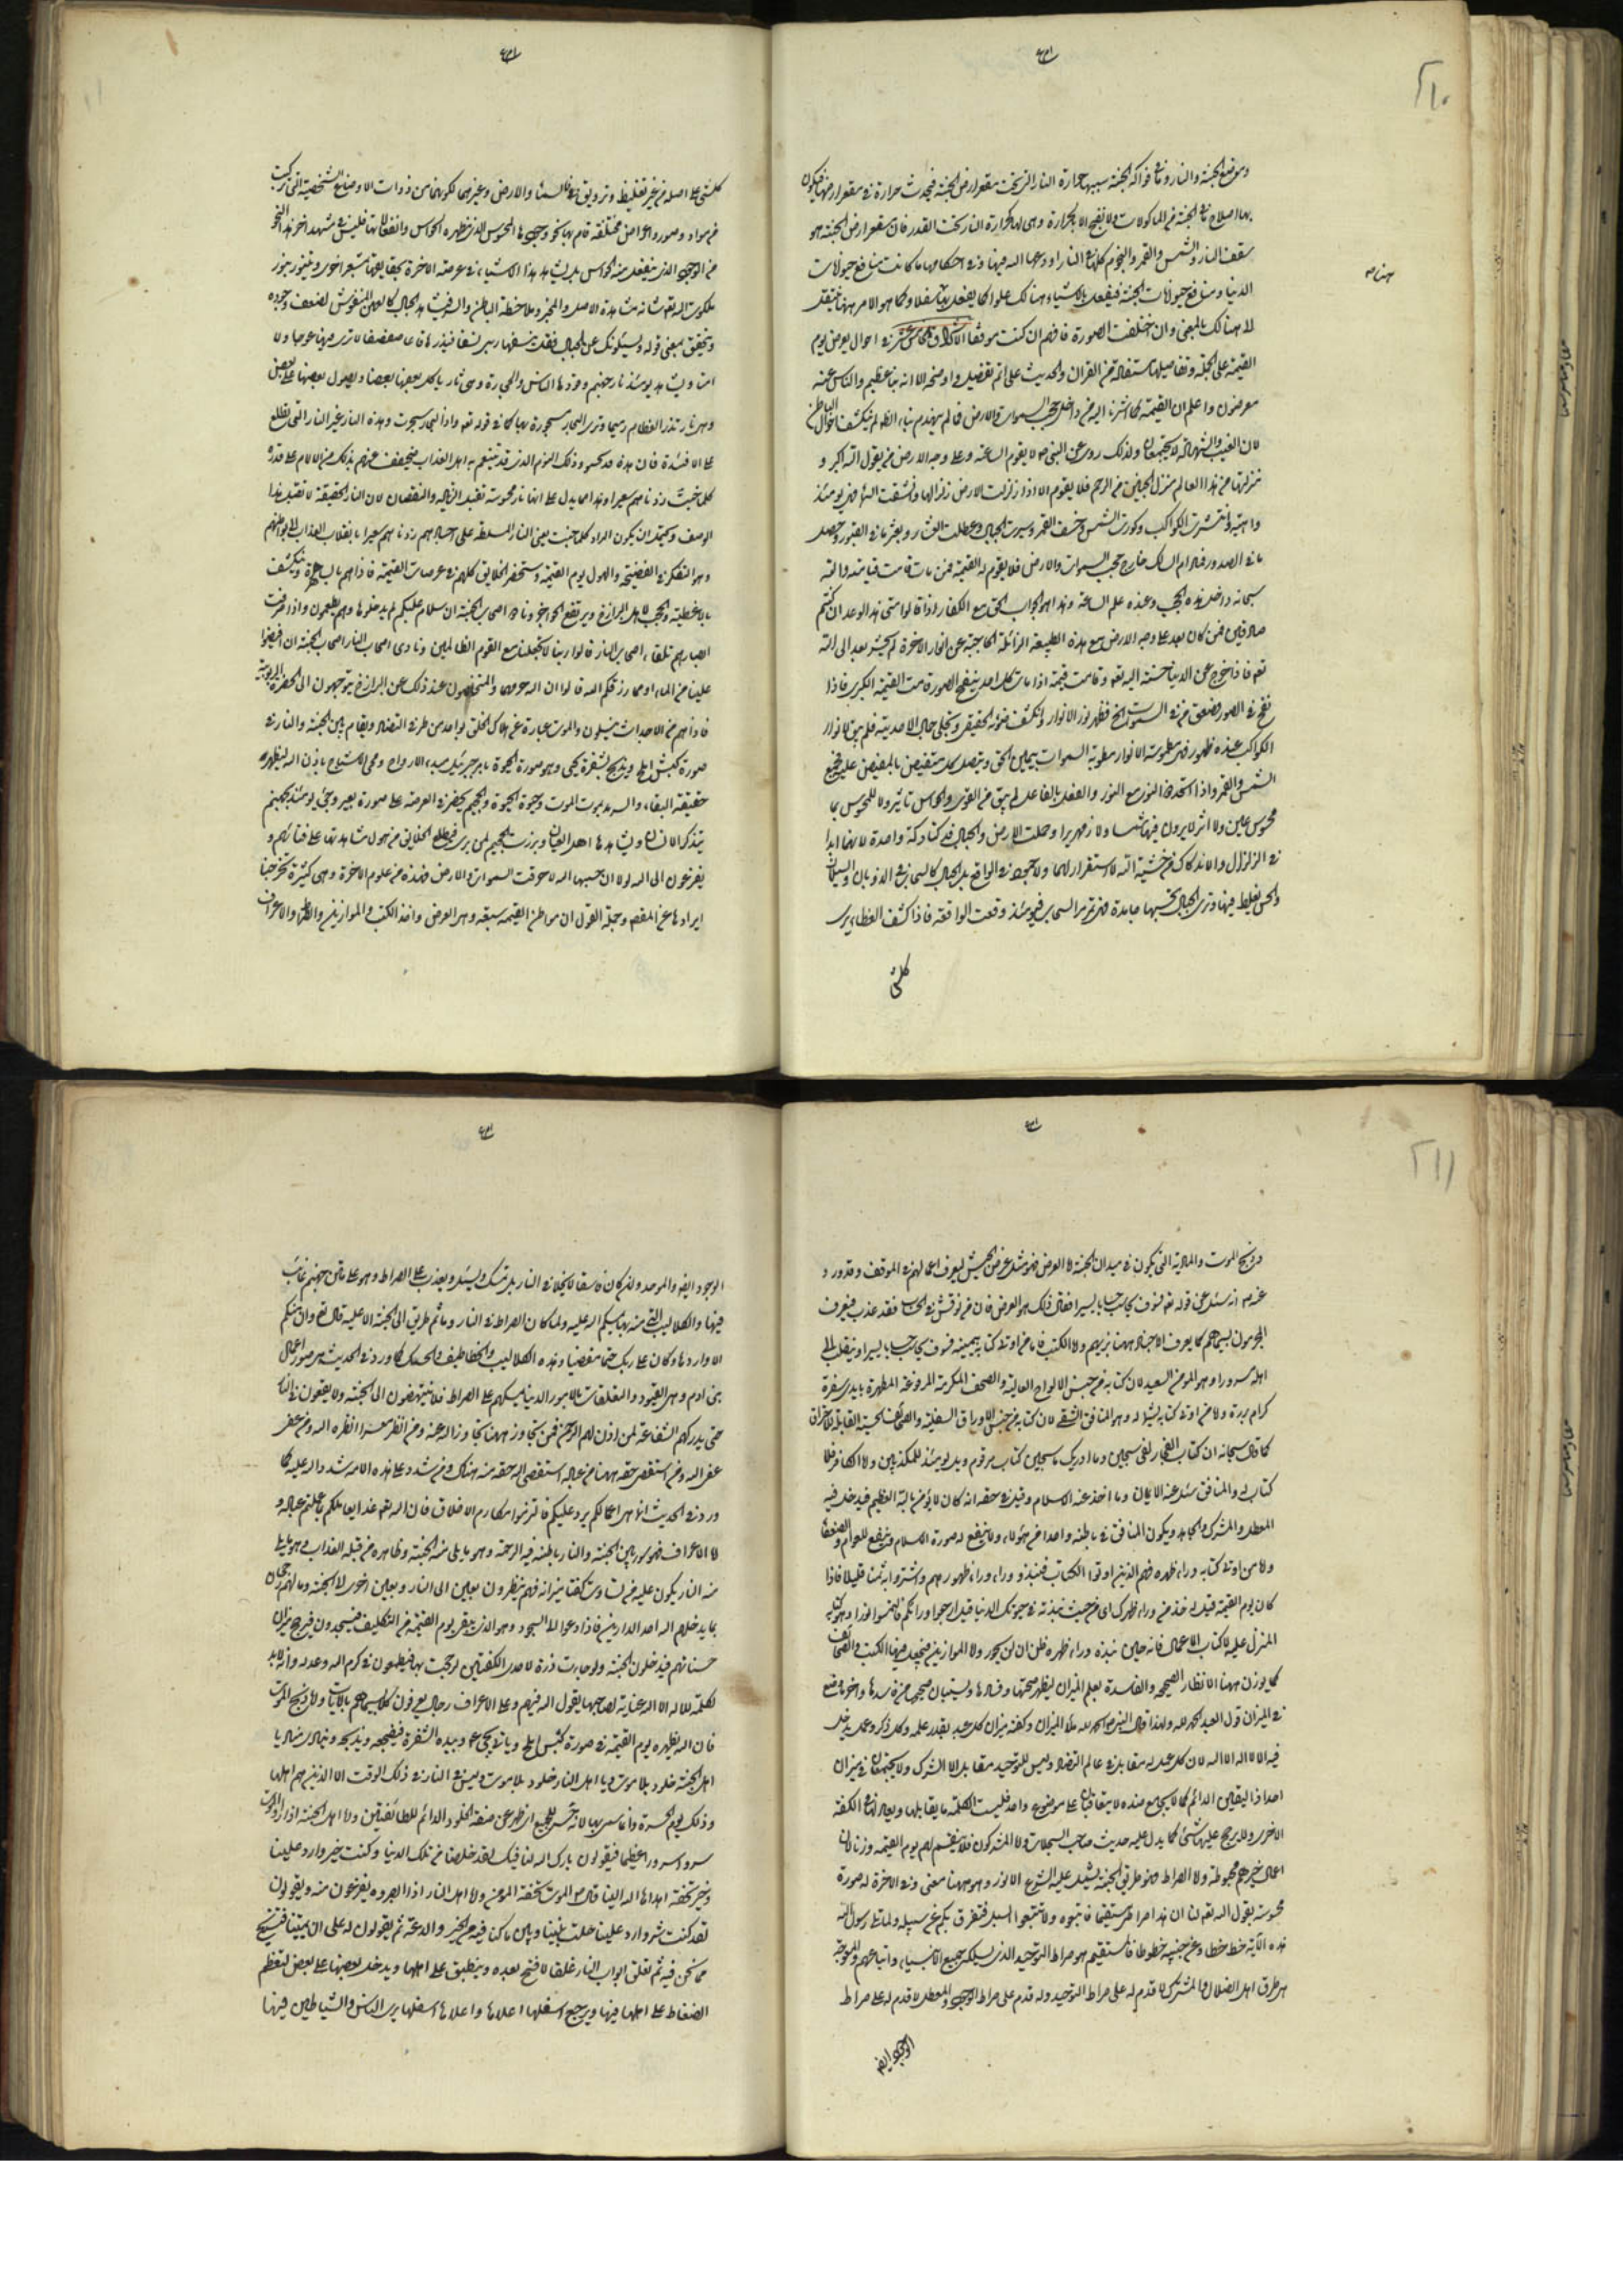 ٢١٠
وموضع الجنة والنار وما في فواكه الجنة سببها حرارة النار التي تحت مقعر ارض الجنة فيحدث حرارة في مقعر ارضها فيكون
بها صلاح ما في الجنة من الماكولات ولا نضج الا بالحرارة وهي لها كحرارة النار تحت القدر فان مقعر ارض الجنة هو
سقف النار والشمس والقمر والنجوم كلها في النار اودعها الله فيها وفي احكامها ما كانت منافع حيوانات
الدنيا ومنافع حيوانات الجنة فيفعل بالاشياء هنالك علوا كما يفعل بها سفلا وكما هو الامر ههنا ينتقل
الى هنالك بالمعنى وان اختلفت الصورة فافهم ان كنت موفقا الاشراق الخامس عشر في احوال يعرض يوم
القيمة على الجملة وتفاصيلها مستفادة من القران والحديث على اتم تفصيل واوضحه الا انه نبأ عظيم والناس عنه
معرضون واعلم ان القيمة كما اشرنا اليه من داخل حجب السموات والارض فما لم ينهدم بناء الظاهر لم ينكشف احوال الباطن
لان الغيب والشهادة لا يجتمعان ولذلك روى عن النبي ص لا يقوم الساعة وعلى وجه الارض من يقول الله الله و
منزلتها من هذا العالم منزلة الجنين من الرحم فلا يقوم الا اذا زلزلت الارض زلزالها وانشقت السماء فهي يومئذ
واهية وانتثرت الكواكب وكورت الشمس وخسف القمر وسيرت الجبال وعطلت العشار وبعثر ما في القبور وحصل
ما في الصدور فما دام السالك خارج حجب السموات والارض فلا يقوم له القيمة فمن مات قامت قيامته والله
سبحانه داخل هذه الحجب وعنده علم الساعة وهذا هو الجواب الحق مع الكفار اذا قالوا متى هذا الوعد ان كنتم
صادقين فمن كان بعد على وجه الارض مع هذه الطبيعة الزائلة الحاجبة عن انوار الاخرة لم يحشر بعد الى الله
تعه فاذا خرج عن الدنيا حشر اليه تعه وقامت قيمته اذا مات كل احد ينفخ الصورة قامت القيمة الكبرى فاذا
نفخ في الصور فصعق من في السموات الخ فظهر نور الانوار وانكشف ضوئه الحقيقي وتجلى جمال الاحدية فلم يبق لانوار
الكواكب عنده ظهور فهي مطموسة الانوار مطوية السموات بيمين الحق ويتصل كل مستفيض بالمفيض عليه فجمع
الشمس والقمر واذا اتحدت النور مع النور والفعل بالفاعل لم يبق من القوى والحواس تاثير ولا للمحسوس بما
محسوس عين ولا اثر لا يرون فيها شمسا ولا زمهريرا وحملت الارض والجبال فدكتا دكة واحدة لانهما ابدا
في الزلزال والاندكاك من خشية الله لا استقرار لهما ولا جمود في الواقع بل الجبال كالسحاب في الذوبان والسيلان
والحس يغلط فيها وترى الجبال تحسبها جامدة وهي تمر مر السحاب فيومئذ وقعت الواقعة فاذا كشف الغطاء يرى
كل شئ
كل شئ على اصله من غير تغليظ وترويق في السماء والارض وغيرهما لكونهما من ذوات الاوضاع الشخصية التي تركبت
من مواد وصور واعراض مختلفة قام بها نحو وجودها المحسوس الذي مظهره الحواس وانفعالاتها فليس في مشهد اخر هذا النحو
من الوجود الذي ينفعل منه الحواس بل يشاهد هذا الاشياء في عرصة الاخرة بحقايقها بمشعر اخروي يتنور بنور
ملكوت الله تعه شانه مشاهدة الاصل والمخبر وملاحظة الباطن والسر فيشاهد الجبال كالعهن المنفوش لضعف وجوده
ويتحقق بمعنى قوله ويسئلونك عن الجبال فقل ينسفها ربي نسفا فيذرها قاعا صفصفا لا ترى فيها عوجا ولا
امتا ويشاهد يومئذ نار جهنم وقودها الناس والحجارة وهي نار ياكل بعضها بعضا ويصول بعضها على بعض
وهي نار تذر العظام رميما وترى البحار مسجورة بها كما في قوله تعه واذا البحار سجرت وهذه النار غير النار التي تطلع
على الافئدة فان هذه قد تخبو وذلك النوم الذي قد يتنعم به اهل العذاب فيخفف عنهم بذلك من الالام على قدره
كلما خبت زدناهم سعيرا وهذا مما يدل على انها نار محسوسة تقبل الزيادة والنقصان لان النار الحقيقة لا تقبل هذا
الوصف ويحتمل ان يكون المراد كلما خبت يعني النار المسلطة على اجسادهم زدناهم سعيرا بانقلاب العذاب الى بواطنهم
وهو التفكر في الفضيحة والهول يوم القيمة ويستحضر الخلايق كلهم في عرصات القيمة فاذا هم بالساهرة وينكشف
بالاغطية والحجب لاهل البرازخ ويرتفع الحواجز ونادوا اصحاب الجنة ان سلام عليكم لم يدخلوها وهم يطمعون واذا صرفت
ابصارهم تلقاء اصحاب النار قالوا ربنا لا تجعلنا مع القوم الظالمين ونادى اصحاب النار اصحاب الجنة ان افيضوا
علينا من الماء او مما رزقكم الله قالوا ان الله حرمهما والمتخلصون عند ذلك عن البرازخ يتوجهون الى الحضرة الربوبية
فاذا هم من الاجداث ينسلون والموت عبارة عن هلاك الخلق لواحد من طرفي التضاد ويقام بين الجنة والنار في
صورة كبش املح ويذبح بشفرة يحيى وهو صورة الحيوة بامر جبرئيل مبدء الارواح ومحيي الاشباح باذن الله ليظهر
حقيقة البقاء والسرمد بموت الموت وحيوة الحيوة والجحيم يحضر في العرصة على صورة بعير وجئ يومئذ بجهنم
يتذكر الانسان ويشاهدها اهل العيان وبرزت الجحيم لمن يرى فيطلع الخلايق من هول مشاهدتها على فنائهم و
يفزعون الى الله لولا ان حبسها الله لاحرقت السموات والارض فهذه من علوم الاخرة وهي كثيرة تخرجنا
ايرادها عن المقصد وجملة القول ان مواطن القيمة سبعة وهي العرض واخذ الكتب والموازين والصراط والاعراف
٢١١
وذبح الموت والمادبة التي يكون في ميدان الجنة اما العرض فهو مثل عرض الجيش ليعرف اعمالهم في الموقف وقد ورد
عنه ص انه سئل عن قوله تعه فسوف يحاسب حسابا يسيرا فقال ذلك هو العرض فان من نوقش في الحساب فقد عذب فيعرف
المجرمون بسيماهم كما يعرف الاجناد ههنا بزيهم واما الكتب فاما من اوتي كتابه بيمينه فسوف يحاسب حسابا يسيرا وينقلب الى
اهله مسرورا وهو المؤمن السعيد لان كتابه من جنس الالواح العالية والصحف المكرمة المرفوعة المطهرة بايدي سفرة
كرام بررة واما من اوتي كتابه بشماله وهو المنافق الشقي لان كتابه من جنس الاوراق السفلية والصحائف الحسية القابلة للاحتراق
كما قال سبحانه ان كتاب الفجار لفي سجين وما ادريك ما سجين كتاب مرقوم ويل يومئذ للمكذبين واما الكافر فلا
كتاب له والمنافق سئل عنه الايمان وما اخذ عنه الاسلام وقيل في حقه انه كان لا يؤمن بالله العظيم فيدخل فيه
المعطل والمشرك والجاحد ويكون المنافق في باطنه واحدا من هؤلاء ولا ينفع له صورة الاسلام وينفع للعوام والضعفاء
واما من اوتي كتابه وراء ظهره فهم الذين اوتوا الكتاب فنبذوه وراء ظهورهم واشتروا به ثمنا قليلا فاذا
كان يوم القيمة قيل له خذه من وراء ظهرك اي من حيث نبذته في حيوتك الدنيا قيل ارجعوا ورائكم فالتمسوا نورا وهو كتابه
المنزل عليه لا كتاب الاعمال فانه حين نبذه وراء ظهره ظن ان لن يحور واما الموازين فيجعل فيها الكتب والصحائف
كما يوزن ههنا الانظار الصحيحة والفاسدة بعلم الميزان ليظهر صحتها وفسادها
في الميزان قول العبد الحمد لله ولهذا قال النبي ص الحمد لله ملأ الميزان وكفة ميزان كل عبد بقدر علمه وكل ذكر وعمل يدخل
فيه الا لا اله الا الله لان كل عمل له مقابل في عالم التضاد وليس للتوحيد مقابل الا الشرك ولا يجتمعان في ميزان
احد اذ اليقين الدائم كما لا يجامع ضده لا يتعاقبان على موضوع واحد فليست للكلمة ما يقابلها ويعادلها في الكفة
الاخرى ولا يرجح عليها شئ كما يدل عليه حديث صاحب السجلات واما المشركون فلا نقيم لهم يوم القيمة وزنا لان
اعمال خيرهم محبوطة واما الصراط فهو طريق الجنة يشتمل عليه الشرع الانور وهو ههنا معنى وفي الاخرة له صورة
محسوسة يقول الله تعه لنا ان هذا صراطي مستقيما فاتبعوه ولا تتبعوا السبل فتفرق بكم عن سبيله ولما تلا رسول الله
هذه الاية خط خطا وعن جنبيه خطوطا فالمستقيم هو صراط التوحيد الذي يسلكه جميع الانبياء واتباعهم والمعوجة
هي طرق اهل الضلال والمشرك لا قدم له على صراط التوحيد وله قدم على صراط الوجود والمعطل لا قدم له على صراط
الوجود ايضا
الوجود ايضا والموحد ولو كان فاسقا لا يخلد في النار بل يمسك ويسئل ويعذب على الصراط وهو على متن جهنم غائب
فيها والكلاليب التي منه بها يمسكهم الله عليه ولما كان الصراط في النار وما ثم طريق الى الجنة الا عليه قال تعه وان منكم
الا واردها وكان على ربك حتما مقضيا وهذه الكلاليب والخطاطيف والحسك كما ورد في الحديث هي صور اعمال
بني ادم وهي القيود والتعلقات بالامور الدنيا يمسكهم على الصراط فلا ينتهضون الى الجنة ولا يقعون في النار
حتى يدركهم الشفاعة لمن اذن لهم الرحمن فمن تجاوز ههنا تجاوز الله عنه ومن انظر معسرا انظره الله ومن عفى
عفى الله ومن استقصى حقه ههنا من عباده استقصى الله حقه منه هناك ومن شدد على هذه الامة شدد الله عليه كما
ورد في الحديث انما هي اعمالكم يرد عليكم فالتزموا مكارم الاخلاق فان الله تعه غدا يعاملكم بما عاملتم عباده و
اما الاعراف فهو سور بين الجنة والنار باطنه فيه الرحمة وهو ما يلي منه الجنة وظاهره من قبله العذاب وهو ما يلي
منه النار يكون عليه من تساوت كفتا ميزانه فهم ينظرون بعين الى النار وبعين اخرى الى الجنة وما لهم رجحان
بما يدخلهم الله احد الدارين فاذا دعوا الى السجود وهو الذي يبقى يوم القيمة من التكليف فيسجدون فيرجح ميزان
حسناتهم فيدخلون الجنة ولو جاءت ذرة لاحدى الكفتين لرجحت بها فيطمعون في كرم الله وعدله وانه لابد
لكلمة لا اله الا الله عناية لصاحبها يقول الله فيهم وعلى الاعراف رجال يعرفون كلا بسيماهم بالايات واما ذبح الموت
فان الله يظهره يوم القيمة في صورة كبش املح وياتي يحيى ع وبيده الشفرة فيضجعه ويذبحه وينادي مناد يا
اهل الجنة خلود بلا موت ويا اهل النار خلود بلا موت وليس في النار في ذلك الوقت الا الذين هم اهلها
وذلك يوم الحسرة وانما سمي بها لانه حسر للجميع اي ظهر عن صفة الخلود الدائم للطائفتين واما اهل الجنة اذا راوا الموت
سروا سرورا عظيما فيقولون بارك الله لنا فيك لقد خلصتنا من تلك الدنيا وكنت خير وارد علينا
وخير تحفة اهداها الله الينا قال ص الموت تحفة المؤمن واما اهل النار اذا ابصروه يفزعون منه ويقولون
لقد كنت شر وارد علينا حلت بيننا وبين ما كنا فيه من الخير والدعة ثم يقولون له عسى ان تميتنا فنستريح
مما نحن فيه ثم تغلق ابواب النار غلقا لا فتح بعده وينطبق على اهلها ويدخل بعضها على بعض ليعظم
الضغاط على اهلها فيها ويرجع اسفلها اعلاها واعلاها اسفلها يرى الناس والشياطين فيها